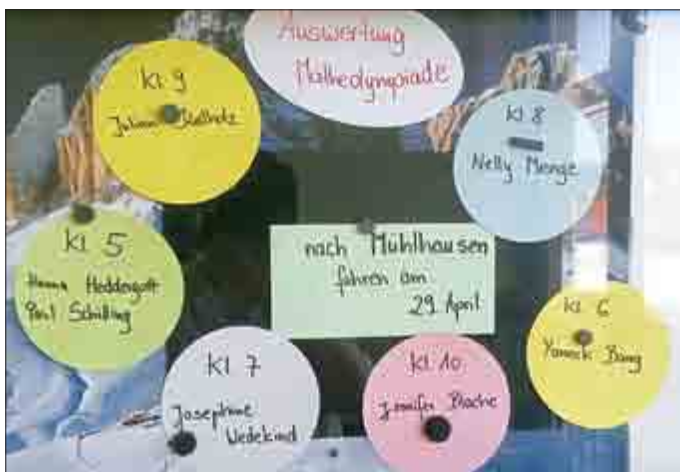 Auswertung
Matheolympiade
Kl. 9
Kl 8
Nelly Menge
Kl 5
Hanna Heddergott
Paul Schilling
nach Mühlhausen
fahren am
29. April
Kl. 6
Yannick Bang
Kl 7
Josephine
Wedekind
Kl 10
Jennifer Blache